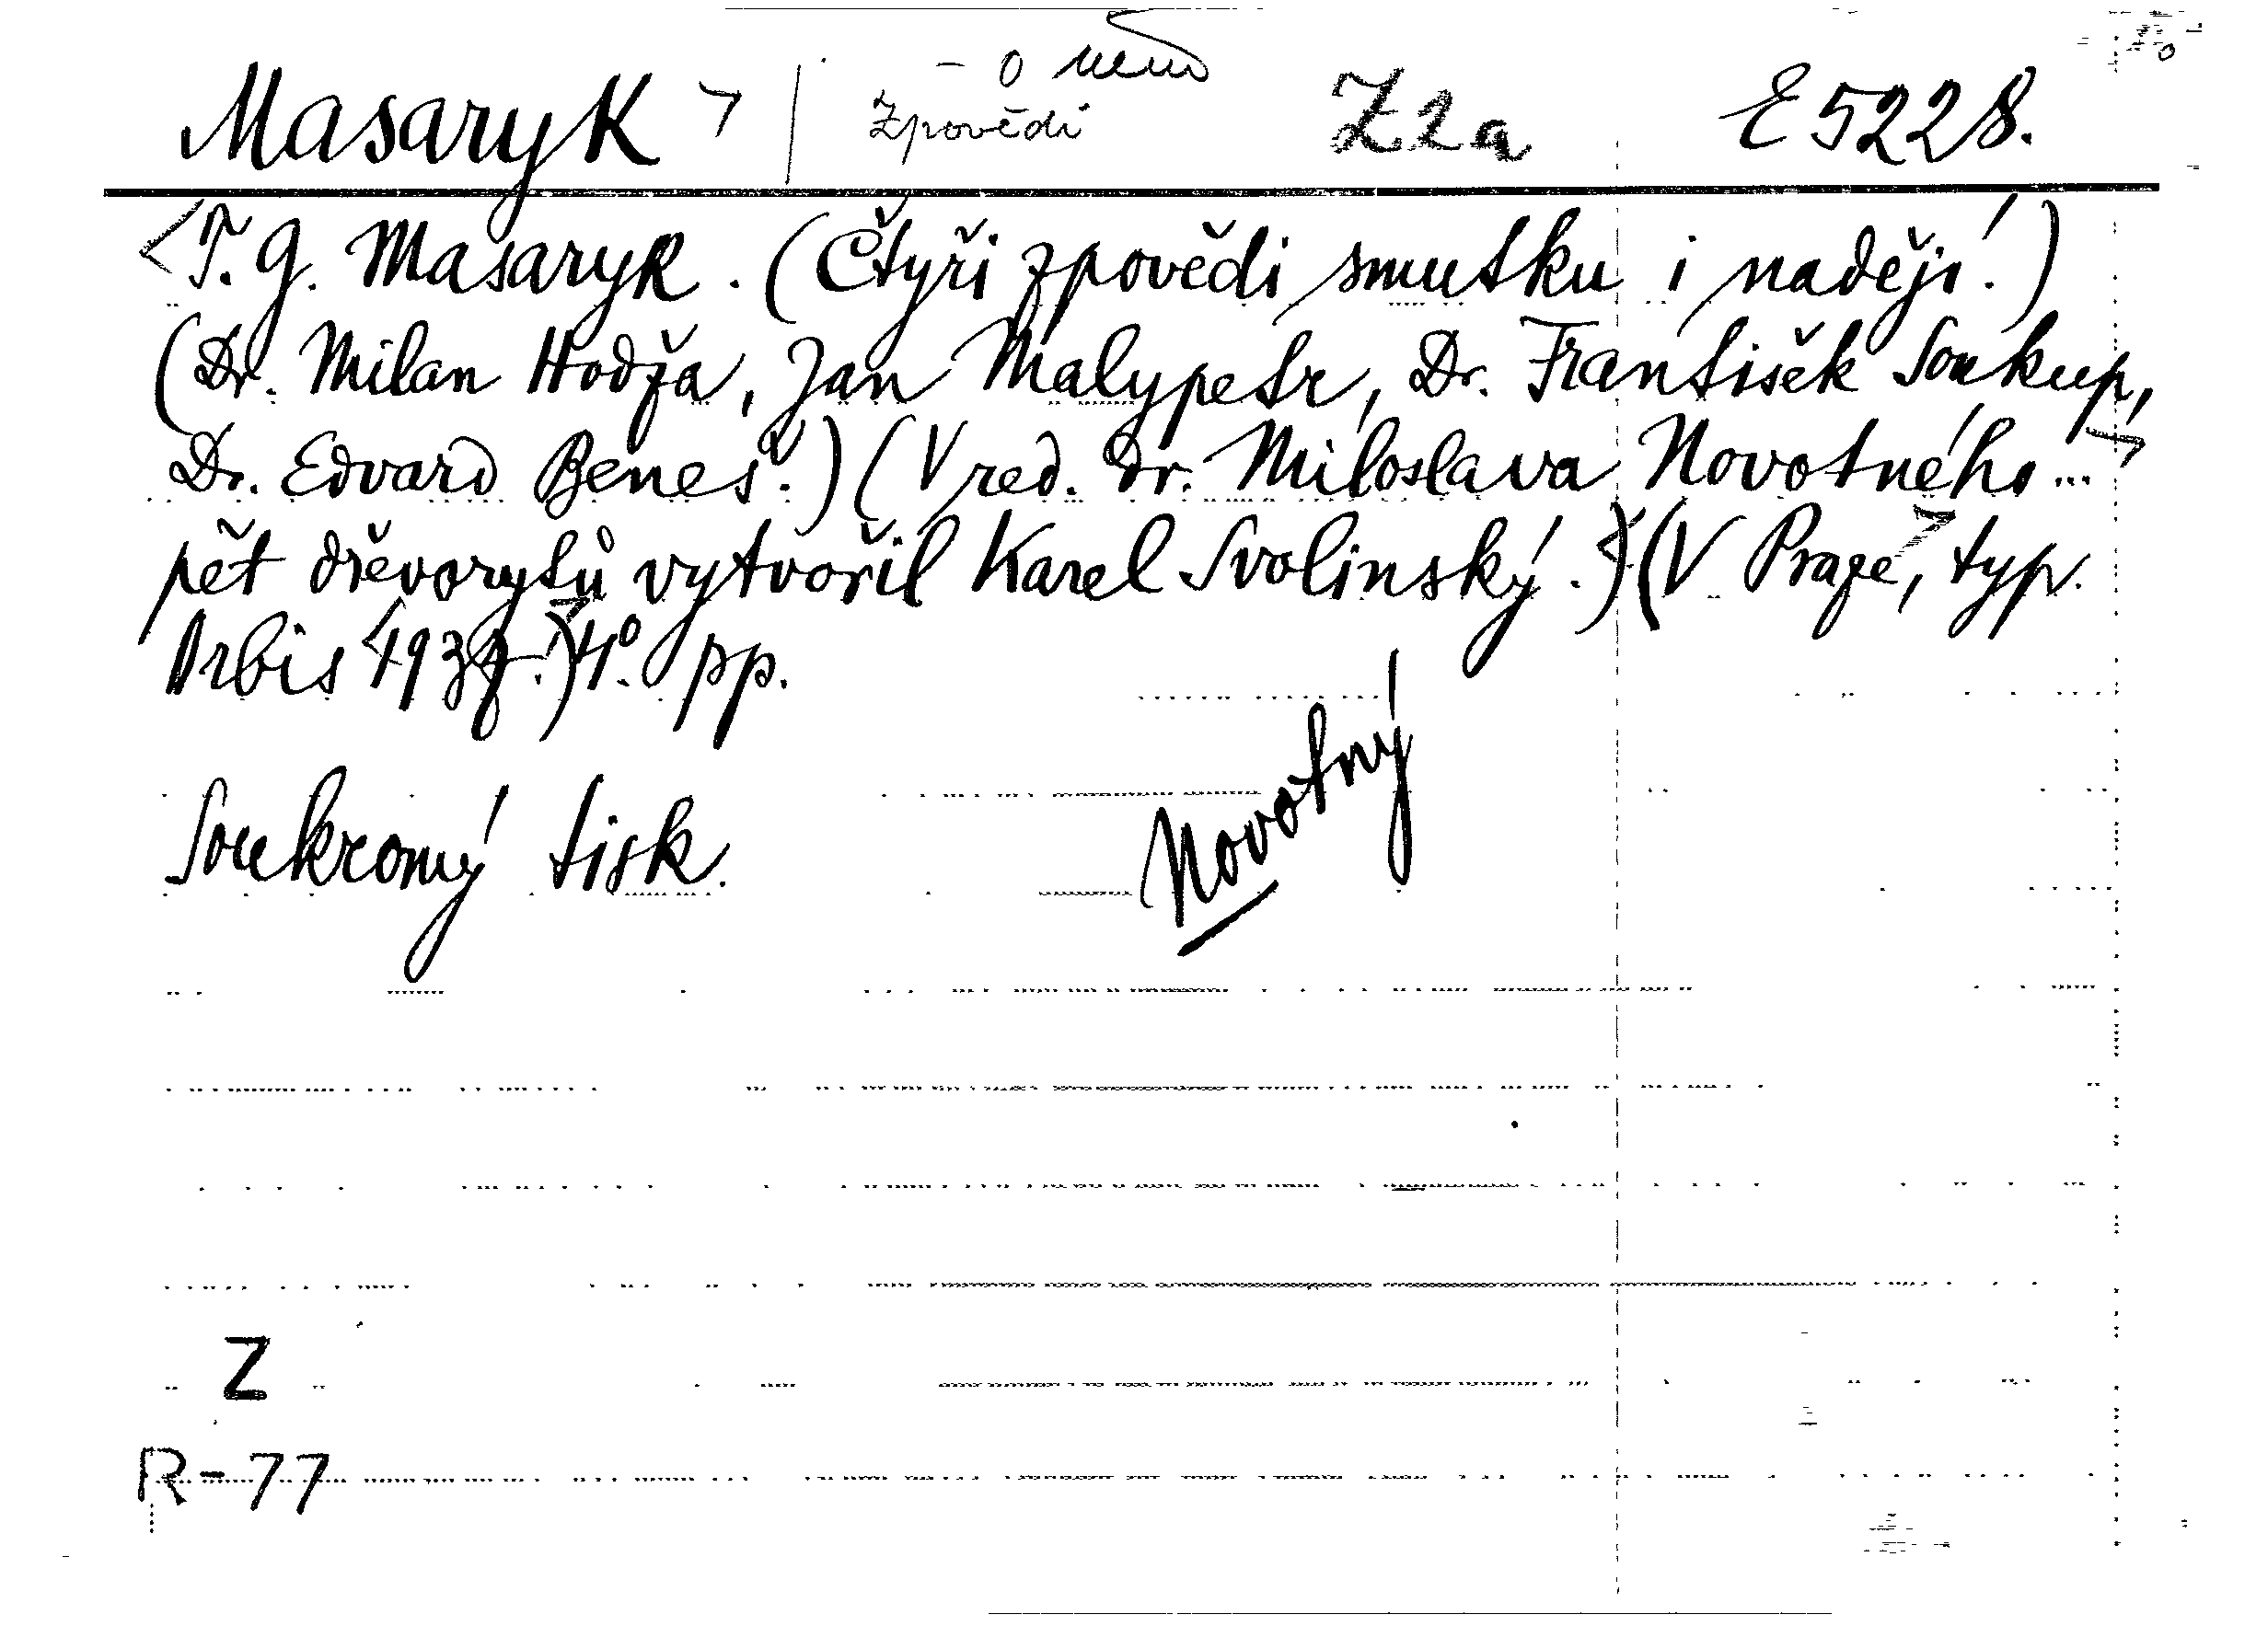 - o něm
Masaryk Zpovědi Z2a E 5228.
<T. G. Masaryk. (Čtyři zpovědi smutku i nadějí.)
(Dr. Milan Hodža, Jan Malypetr, Dr. František Soukup,
Dr. Edvard Beneš.) (V red. Dr. Miloslava Novotného...>
pět dřevorytů vytvořil Karel Svolinský.) (V Praze, typ.
Orbis <1937.>) 4°. pp.
Soukromý tisk.
Novotný
Z
R-77